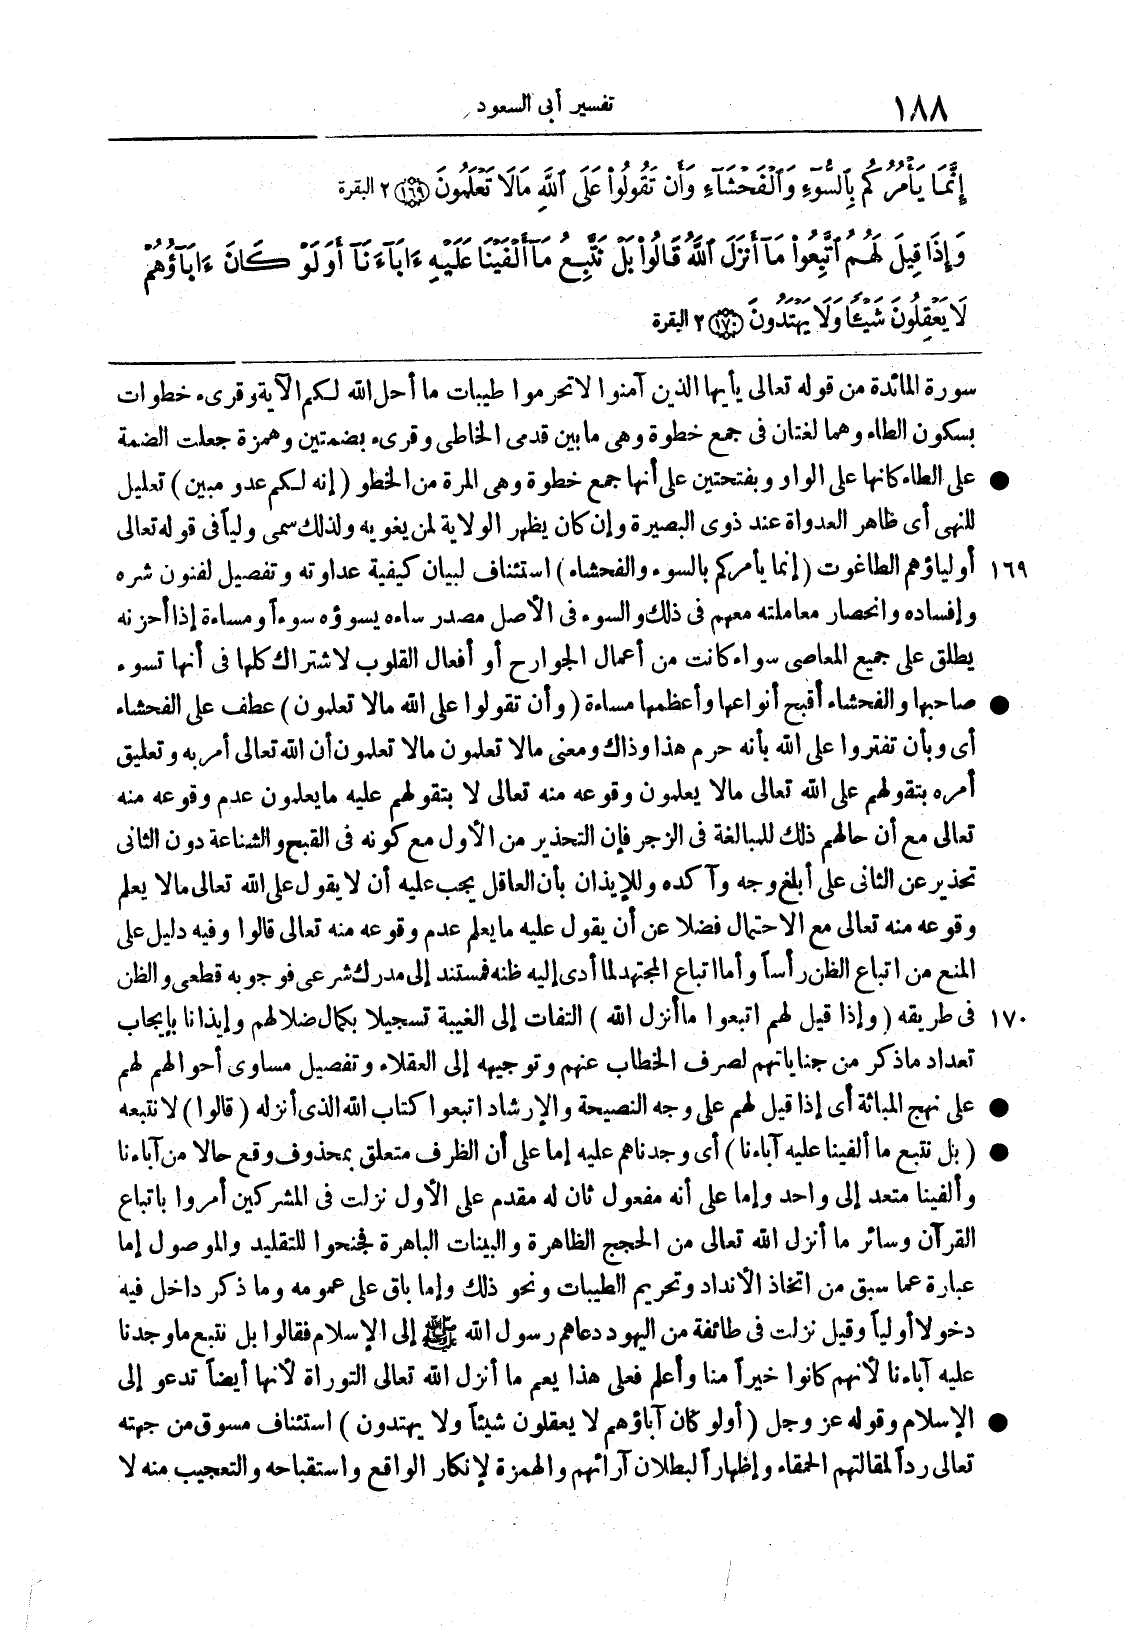 ١٨٨
تفسير أبى السعود
إِنَّمَا يَأْمُرُكُم بِالسُّوءِ وَالْفَحْشَاءِ وَأَن تَقُولُوا عَلَى اللَّهِ مَا لَا تَعْلَمُونَ ١٦٩ ٢ البقرة
وَإِذَا قِيلَ لَهُمُ اتَّبِعُوا مَا أَنزَلَ اللَّهُ قَالُوا بَلْ نَتَّبِعُ مَا أَلْفَيْنَا عَلَيْهِ ءَابَاءَنَا أَوَلَوْ كَانَ ءَابَاؤُهُمْ
لَا يَعْقِلُونَ شَيْئًا وَلَا يَهْتَدُونَ ١٧٠ ٢ البقرة
سورة المائدة من قوله تعالى يأيها الذين آمنوا لاتحرموا طيبات ما أحل الله لكم الآية وقرىء خطوات
بسكون الطاء وهما لغتان فى جمع خطوة وهى مابين قدمى الخاطى وقرىء بضمتين وهمزة جعلت الضمة
● على الطاء كانها على الواو وبفتحتين على أنها جمع خطوة وهى المرة من الخطو ( إنه لكم عدو مبين ) تعليل
للنهى أى ظاهر العدواة عند ذوى البصيرة وإن كان يظهر الولاية لمن يغويه ولذلك سمى ولياً فى قوله تعالى
١٦٩ أولياؤهم الطاغوت ( إنما يأمركم بالسوء والفحشاء ) استئناف لبيان كيفية عداوته وتفصيل لفنون شره
وإفساده وانحصار معاملته معهم فى ذلك والسوء فى الأصل مصدر ساءه يسوؤه سوءاً ومساءة إذا أحزنه
يطلق على جميع المعاصى سواء كانت من أعمال الجوارح أو أفعال القلوب لاشتراك كلها فى أنها تسوء
● صاحبها والفحشاء أقبح أنواعها وأعظمها مساءة ( وأن تقولوا على الله مالا تعلمون ) عطف على الفحشاء
أى وبأن تفتروا على الله بأنه حرم هذا وذاك ومعنى مالا تعلمون مالا تعلمون أن الله تعالى أمر به وتعليق
أمره بتقولهم على الله تعالى مالا يعلمون وقوعه منه تعالى لا بتقولهم عليه مايعلمون عدم وقوعه منه
تعالى مع أن حالهم ذلك للمبالغة فى الزجر فإن التحذير من الأول مع كونه فى القبح والشناعة دون الثانى
تحذير عن الثانى على أبلغ وجه وآكده وللإيذان بأن العاقل يجب عليه أن لا يقول على الله تعالى مالا يعلم
وقوعه منه تعالى مع الاحتمال فضلا عن أن يقول عليه مايعلم عدم وقوعه منه تعالى قالوا وفيه دليل على
المنع من اتباع الظن رأساً وأما اتباع المجتهد لما أدى إليه ظنه فمستند إلى مدرك شرعى فوجوبه قطعى والظن
١٧٠ فى طريقه ( وإذا قيل لهم اتبعوا ما أنزل الله ) التفات إلى الغيبة تسجيلا بكمال ضلالهم وإيذانا بإيجاب
تعداد ماذكر من جناياتهم لصرف الخطاب عنهم وتوجيهه إلى العقلاء وتفصيل مساوى أحوالهم لهم
● على نهج المباثة أى إذا قيل لهم على وجه النصيحة والإرشاد اتبعوا كتاب الله الذى أنزله ( قالوا ) لا نتبعه
● ( بل نتبع ما ألفينا عليه آباءنا ) أى وجدناهم عليه إما على أن الظرف متعلق بمحذوف وقع حالا من آباءنا
وألفينا متعد إلى واحد وإما على أنه مفعول ثان له مقدم على الأول نزلت فى المشركين أمروا باتباع
القرآن وسائر ما أنزل الله تعالى من الحجج الظاهرة والبينات الباهرة فجنحوا للتقليد والموصول إما
عبارة عما سبق من اتخاذ الأنداد وتحريم الطيبات ونحو ذلك وإما باق على عمومه وما ذكر داخل فيه
دخولا أولياً وقيل نزلت فى طائفة من اليهود دعاهم رسول الله ﷺ إلى الإسلام فقالوا بل نتبع ماوجدنا
عليه آباءنا لأنهم كانوا خيراً منا وأعلم فعلى هذا يعم ما أنزل الله تعالى التوراة لأنها أيضاً تدعو إلى
● الإسلام وقوله عز وجل ( أولو كان آباؤهم لا يعقلون شيئاً ولا يهتدون ) استئناف مسوق من جهته
تعالى رداً لمقالتهم الحمقاء وإظهاراً لبطلان آرائهم والهمزة لإنكار الواقع واستقباحه والتعجيب منه لا